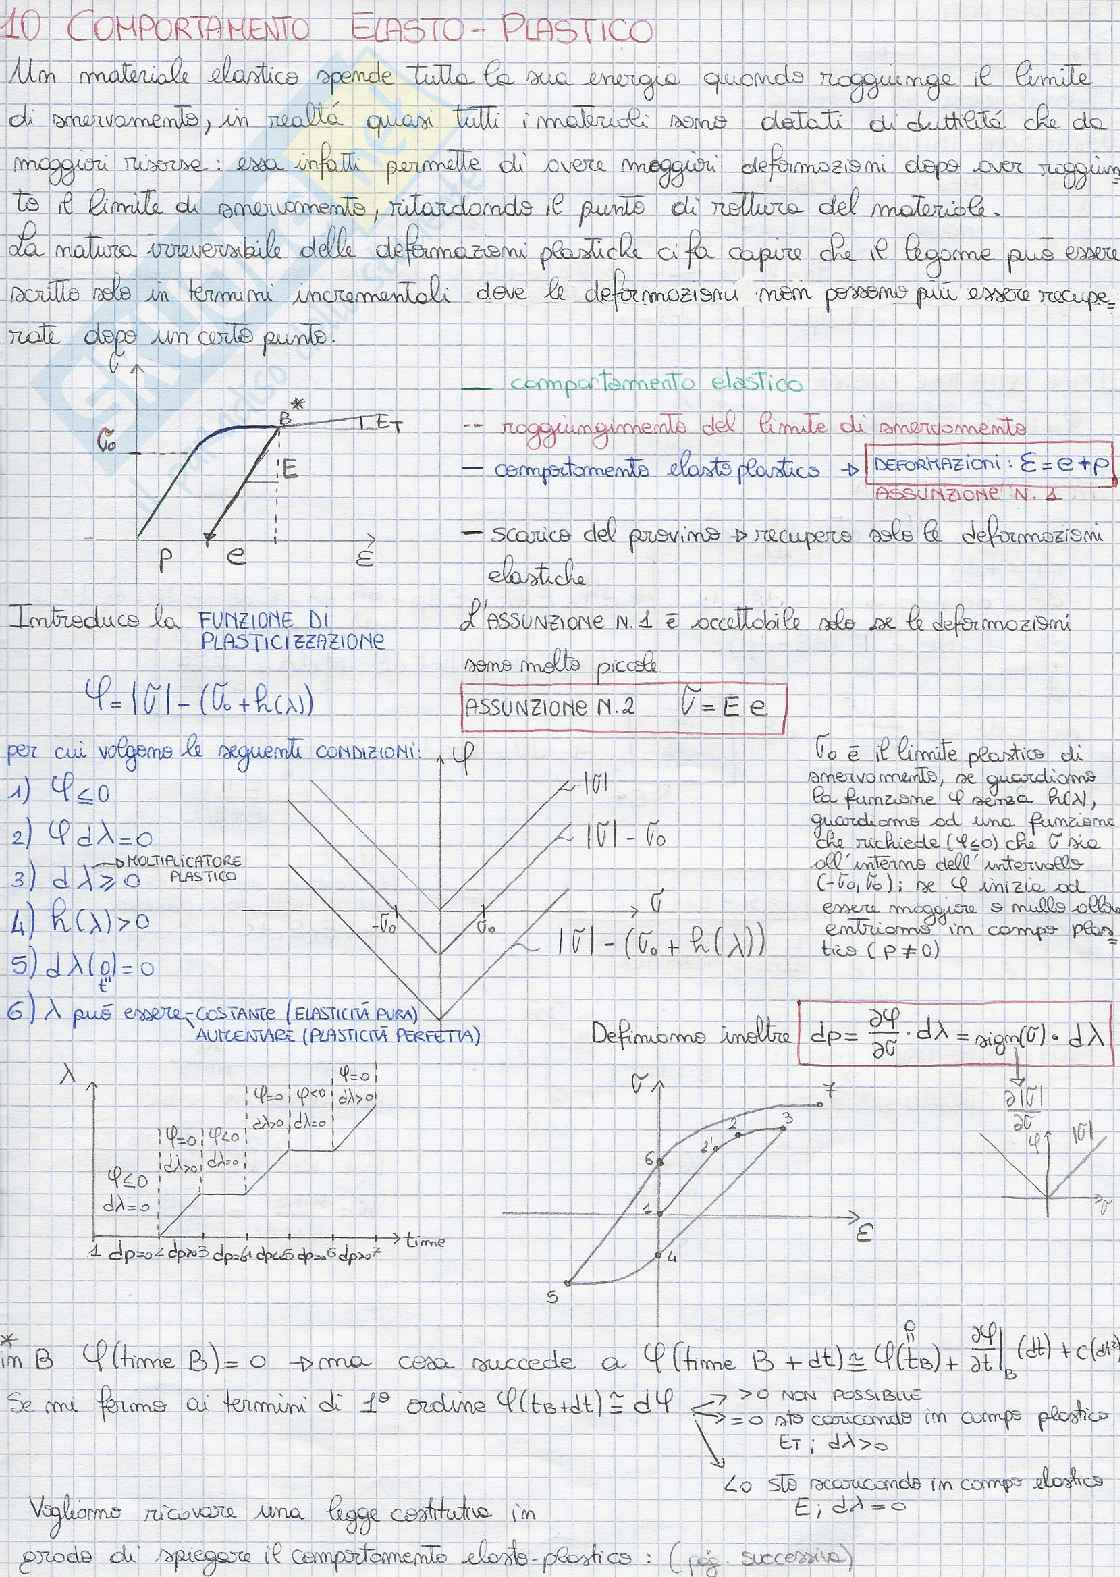 10 COMPORTAMENTO ELASTO-PLASTICO
Un materiale elastico spende tutta la sua energia quando raggiunge il limite
di snervamento, in realtá quasi tutti i materiali sono dotati di duttilitá che da
maggiori risorse: essa infatti permette di avere maggiori deformazioni dopo aver raggiun=
to il limite di snervamento, ritardando il punto di rottura del materiale.
La natura irreversibile delle deformazioni plastiche ci fa capire che il legame puó essere
scritto solo in termini incrementali dove le deformazioni non possono piú essere recupe=
rate dopo un certo punto.
σ
— comportamento elastico
B *
ET
σ₀
-- raggiungimento del limite di snervamento
E
— comportamento elastoplastico → DEFORMAZIONI: ε = e + p
ASSUNZIONE N. 1
— scarico del provino → recupero solo le deformazioni
p e ε
elastiche
Introduco la FUNZIONE DI
PLASTICIZZAZIONE
L'ASSUNZIONE N.1 é accettabile solo se le deformazioni
sono molto piccole
φ = |σ| - (σ₀ + h(λ))
ASSUNZIONE N.2 σ = E e
per cui valgono le seguenti CONDIZIONI:
1) φ ≤ 0
2) φ dλ = 0
3) dλ ≥ 0 → MOLTIPLICATORE
PLASTICO
4) h(λ) > 0
5) dλ(0) = 0
t
6) λ puó essere COSTANTE (ELASTICITÁ PURA)
AUMENTARE (PLASTICITÁ PERFETTA)
φ
|σ|
|σ| - σ₀
-σ₀ σ₀ σ
|σ| - (σ₀ + h(λ))
σ₀ é il limite plastico di
snervamento, se guardiamo
la funzione φ senza h(λ),
guardiamo ad una funzione
che richiede (φ≤0) che σ sia
all'interno dell'intervallo
(-σ₀, σ₀); se φ inizia ad
essere maggiore o nullo allora
entriamo in campo plas=
tico (p ≠ 0)
Definiamo inoltre dp = ∂φ/∂σ · dλ = sign(σ) · dλ
λ
φ≤0
dλ=0
φ=0
dλ>0
φ<0
dλ=0
φ=0
dλ>0
φ<0
dλ=0
φ=0
dλ>0
time
1 dp=0 2 dp>0 3
σ
7
2 3
2'
6
1
ε
4
5
∂|σ|/∂σ
φ |σ|
σ
*
in B φ(time B) = 0 → ma cosa succede a φ(time B + dt) ≅ φ(tB) + ∂φ/∂t|B (dt) + C(dt²)
0
Se mi fermo ai termini di 1° ordine φ(tB+dt) ≅ dφ
>0 NON POSSIBILE
=0 sto caricando in campo plastico
ET ; dλ>0
<0 sto scaricando in campo elastico
E ; dλ = 0
Vogliamo ricavare una legge costitutiva in
grado di spiegare il comportamento elasto-plastico: (pag. successiva)